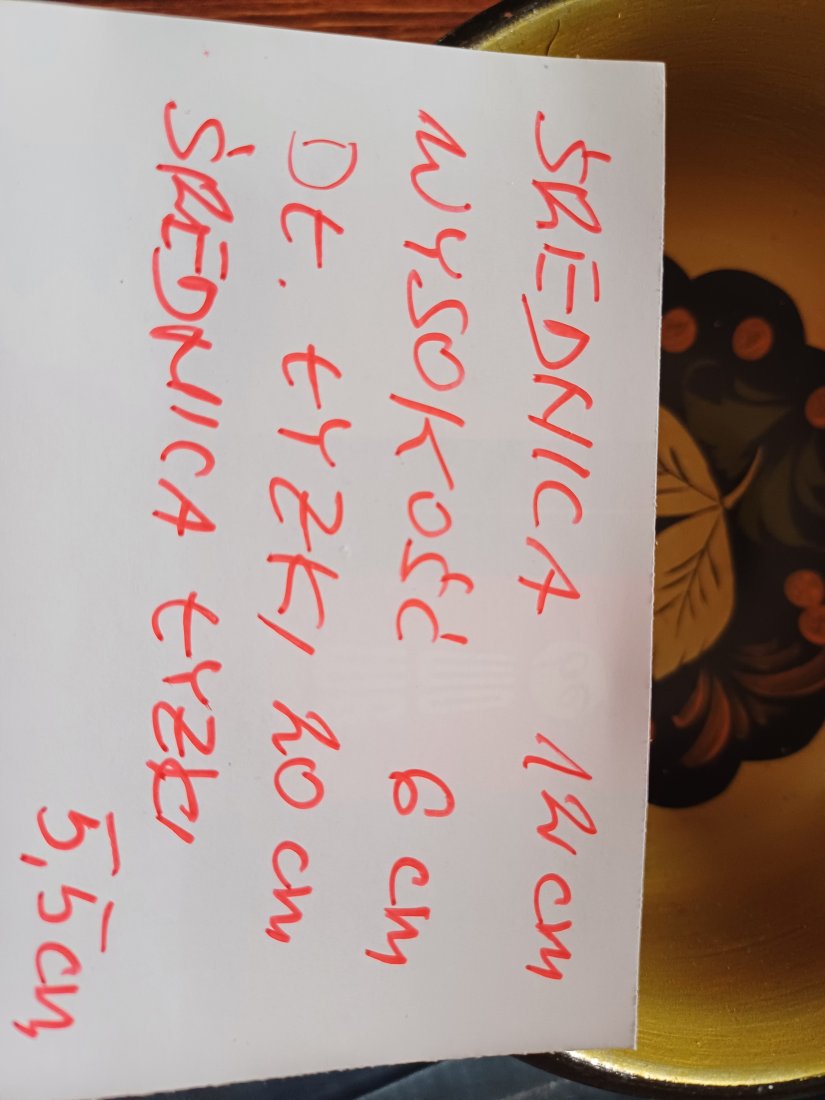 ŚREDNICA 12 cm
WYSOKOŚĆ 6 cm
DŁ. ŁYŻKI 20 cm
ŚREDNICA ŁYŻKI
5,5 cm